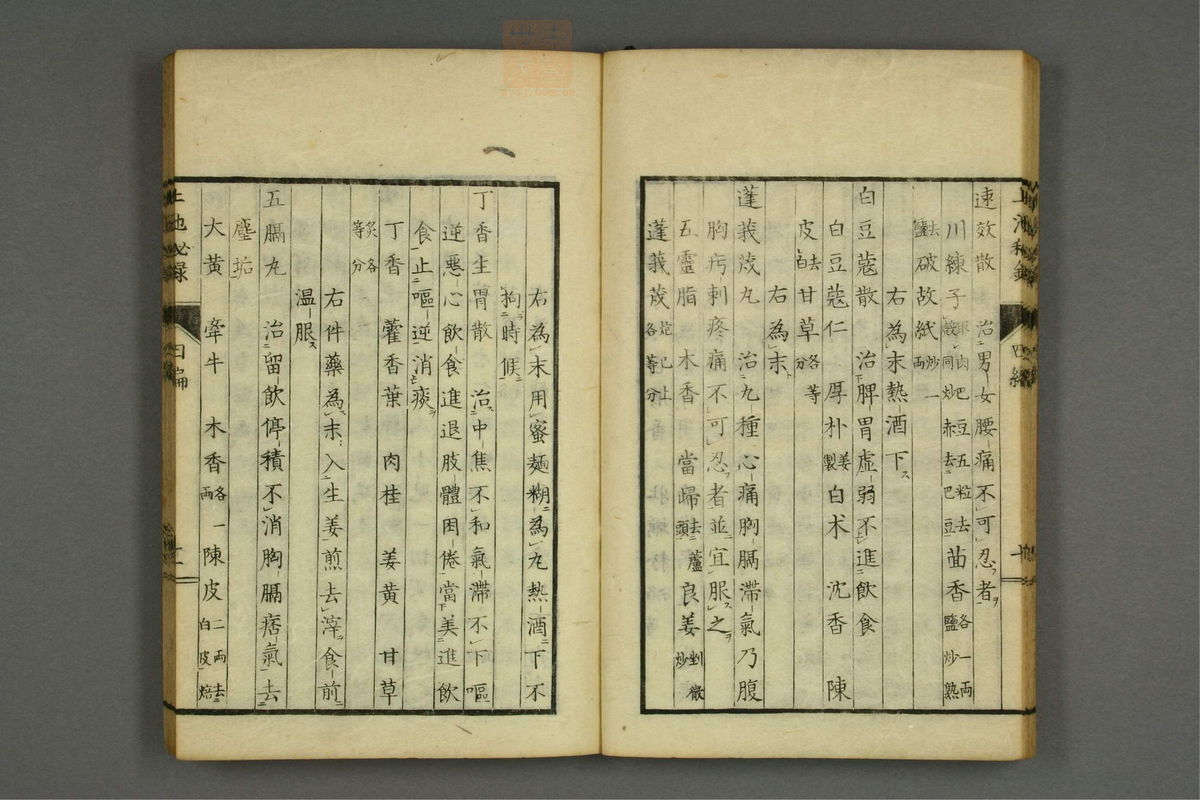 速效散 治男女腰痛不可忍者
川練子取肉巴豆五粒去殼同炒赤去巴豆茴香各一兩鹽炒熟
去鹽破故紙一兩炒
右為末熱酒下
白豆蔻散 治脾胃虛弱不進飲食
白豆蔻仁 厚朴姜製白术 沈香 陳
皮去白甘草各等分
右為末
蓬莪茂丸 治九種心痛胸膈滯氣乃腹
胸疞刺疼痛不可忍者並宜服之
五靈脂 木香 當歸去蘆頭良姜剉微炒
蓬莪茂炮已上各等分
右為末用蜜麵糊為丸熱酒下不
拘時候
丁香生胃散 治中焦不和氣滯不下嘔
逆惡心飲食進退肢體困倦當美進飲
食止嘔逆消痰
丁香 藿香葉 肉桂 姜黄 甘草
炙各等分
右件藥為末入生姜煎去滓食前
溫服
五膈丸 治留飲停積不消胸膈痞氣去
塵垢
大黄 牽牛 木香各一兩陳皮二兩去白皮焙
池必录 四編